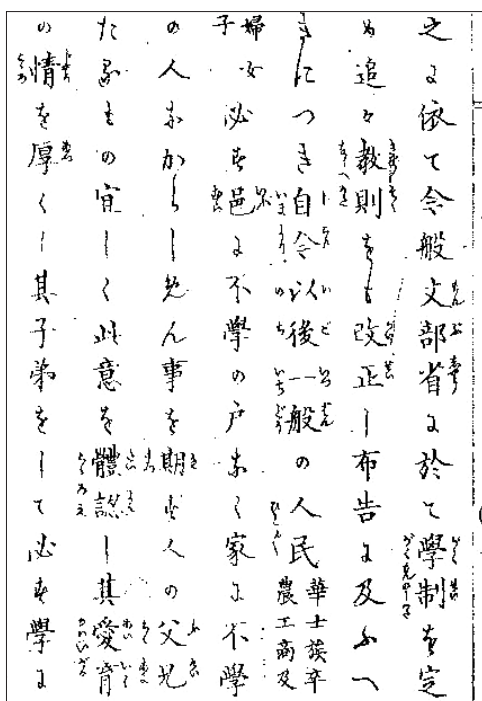 之に依て今般文部省に於て學制を定
め追々教則をも改正し布告に及ふへ
きにつき自今以後一般の人民華士族卒農工商及
婦女子必す邑に不學の戸なく家に不學
の人なからしめん事を期す人の父兄
たるもの宜しく此意を體認し其愛育
の情を厚くし其子弟をして必す學に